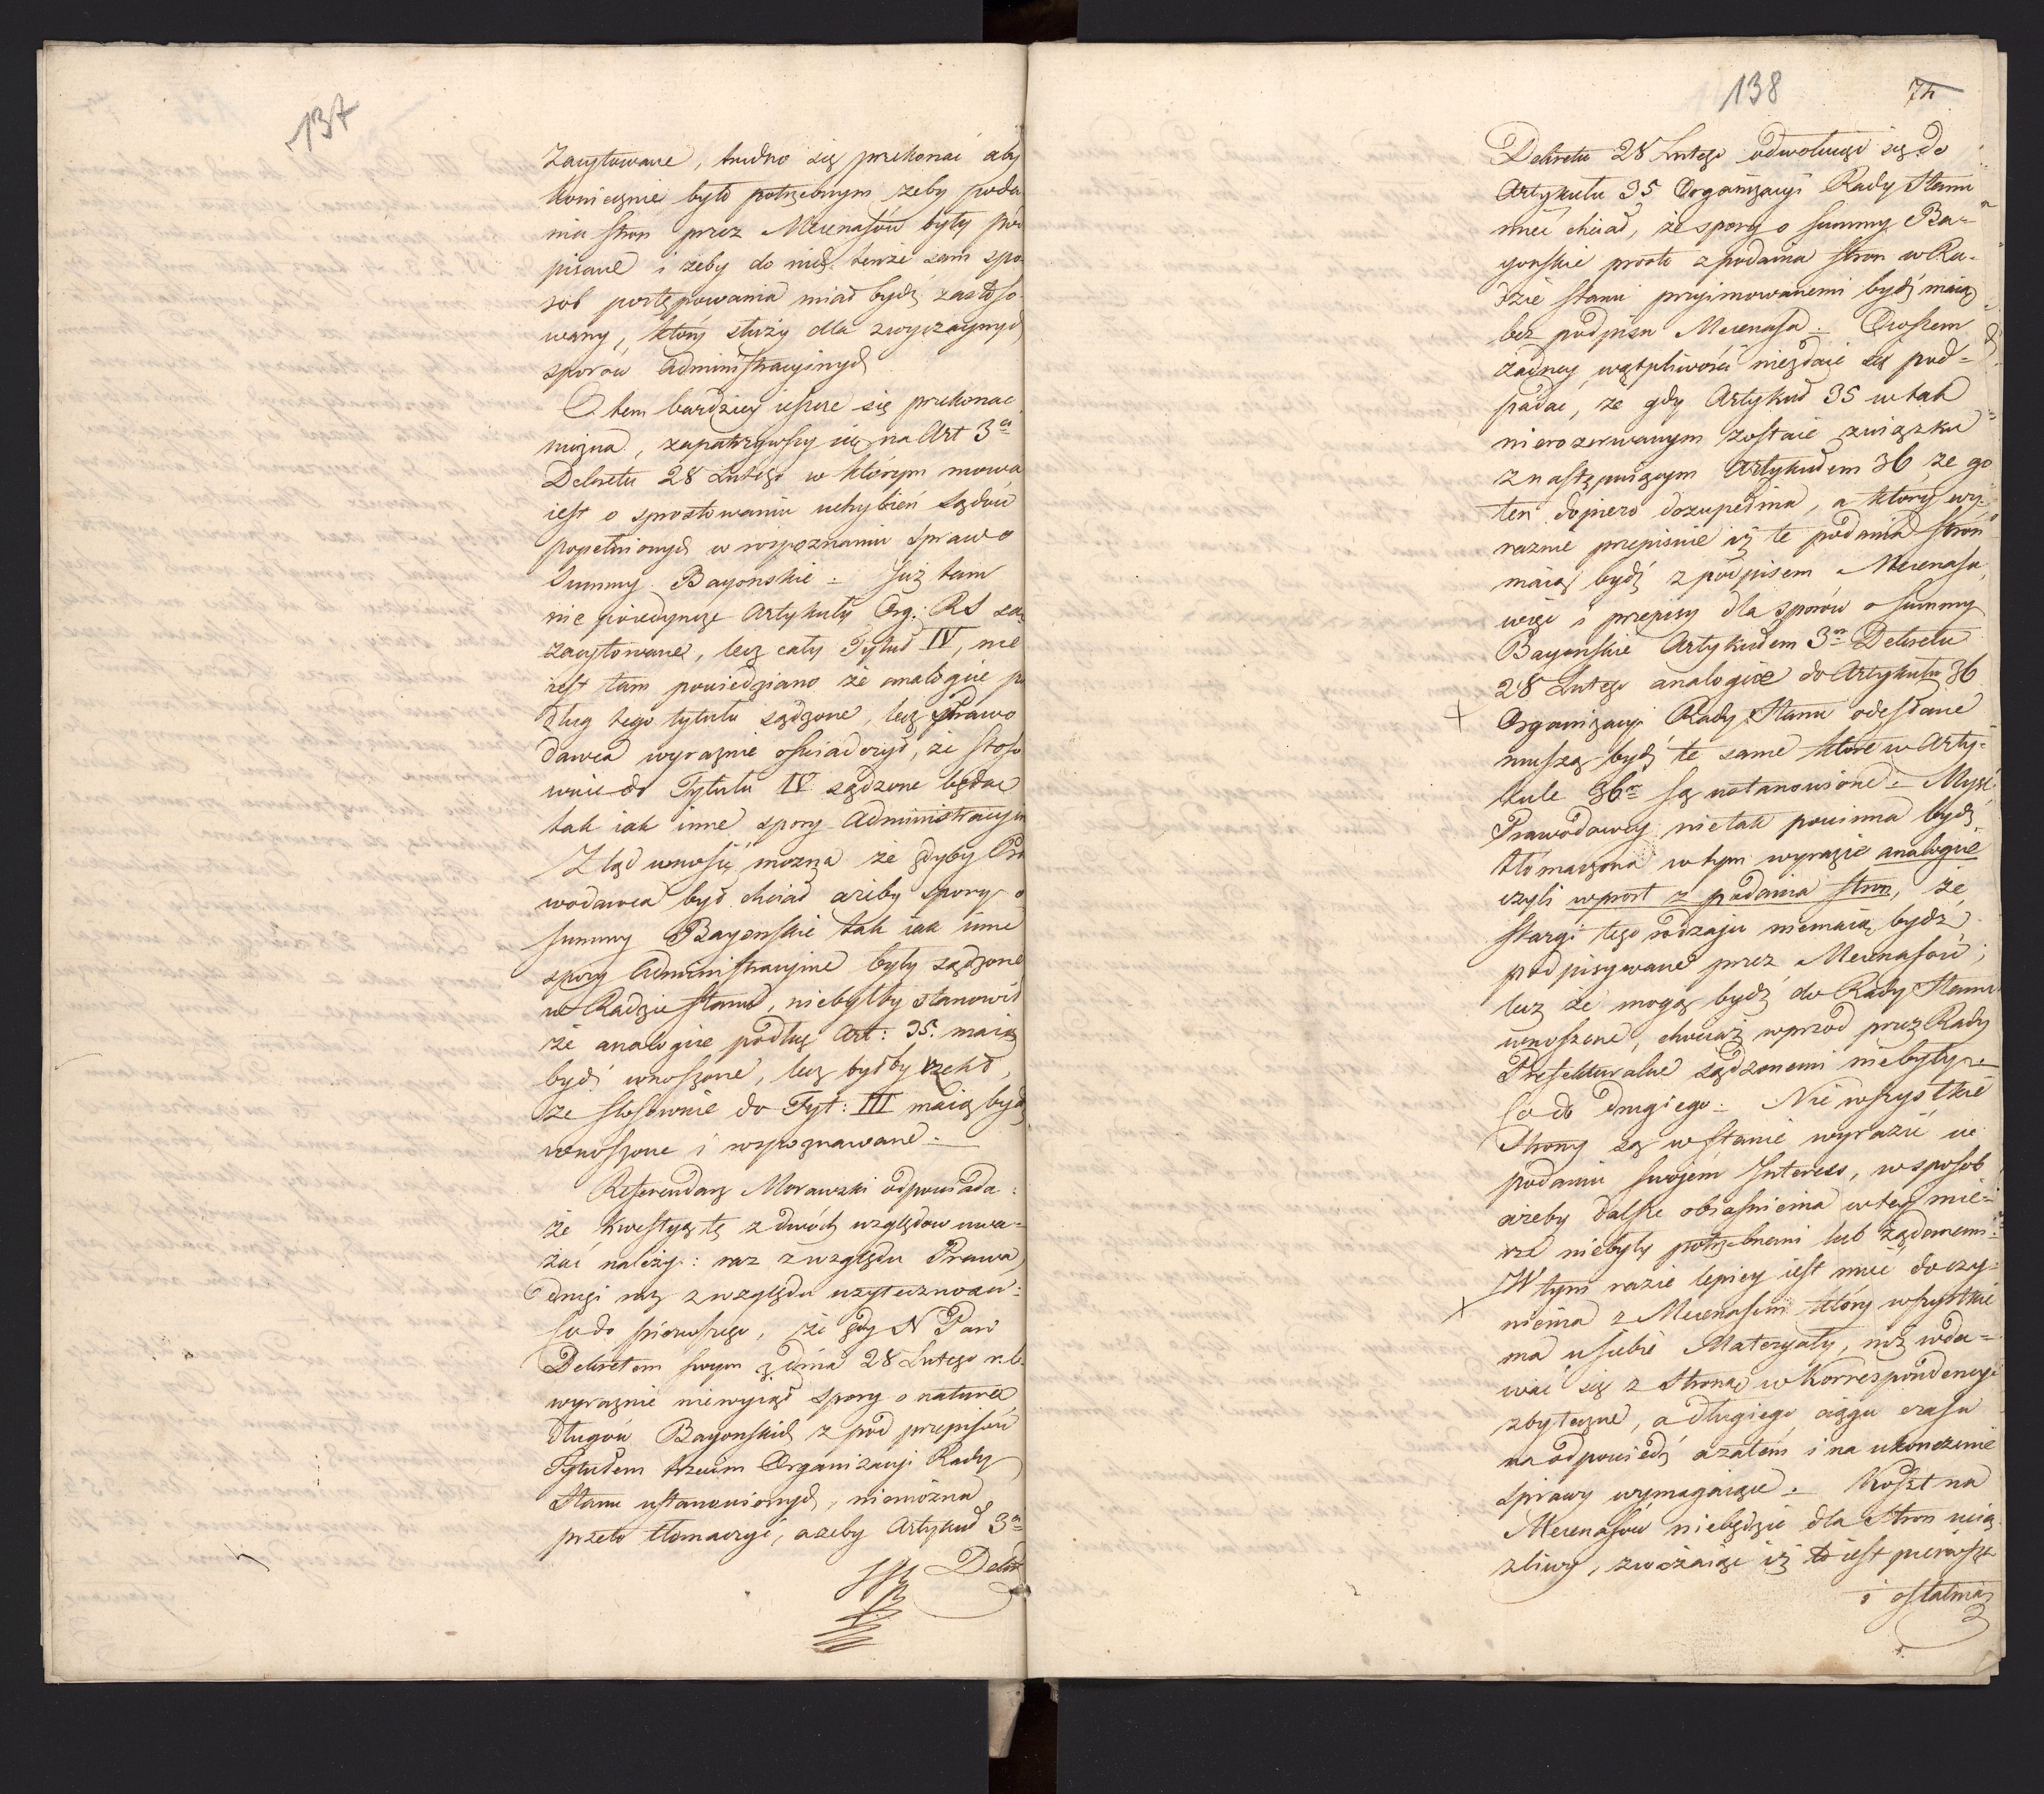 137
zacytowane, trudno się przekonać aby
koniecznie było potrzebnym żeby poda
nia stron przez Mecenasów były pod
pisane i żeby do nich tenże sam spo
sob postępowania miał bydź zastoso
wany, który służy dla zwyczaynych
sporów administracyinych
O tem bardziey ieszcze się przekonac
można, zapatrzywszy się na Art 3ci
Dekretu 28 Lutego w którym mowa
iest o sprostowaniu uchybień sądów
popełnionych w rozpoznaniu spraw o
Summy Bayońskie = Już tam
nie poiedyncze Artykuły Org: RS są
zacytowane, lecz cały Tytuł IV, nie
iest tam powiedziano że analogice po
dług tego tytułu sądzone, lecz Prawo
dawca wyraznie oswiadczył, że stoso
wnie do Tytułu IV sądzone będac
tak iak inne spory Administracyin
Z tąd wnosić można że gdyby Pra
wodawca był chciał ażeby spory o
summy Bayońskie tak iak inne
spory administracyine były sądzone
w Radzie stanu, niebyłby stanowił
że analogice podług Art: 35. maią
bydź wnoszone, lecz byłby rzekł,
że stosownie do Tyt: III maią bydź
wnoszone i rozpoznawane =
Referendarz Morawski odpowiada:
że kwestyą tę z dwóch względów uwa=
żać należy: raz z względu Prawa
drugi raz z względu uzyteczności:
Co do pierwszego, że gdy N Pan
Dekretem swym z dnia 28 Lutego r.b.
wyraznie niewyiął spory o naturę
długów Bayonskich z pod przepisów
Tytułem trzecim Organizacyi Rady
Stanu ustanowionych, niemożna
przeto tłomaczyć, ażeby Artykuł 3ci
Dekret
138
74
Dekretu 28 Lutego odwołuiąc się do
Artykułu 35 Organizacyi Rady Stanu
mieć chciał, że spory o summy Ba=
yonskie prosto z podania stron w Ra=
dzie stanu przyimowanemi bydź maią
bez podpisu Mecenasa =. Owszem
żadney wątpliwości niezdaie się pod=
padać, że gdy Artykuł 35 w tak
nierozerwanym zostaie związku
z następuiącym Artykułem 36 że go
ten dopiero dozupełnia, a który wy=
raznie przepisuie iż te podania stron
maią bydź z podpisem Mecenasa,
więc i przepisy dla sporów o summy
Bayonskie Artykułem 3m Dekretu
28 Lutego analogice do Artykułu 36
Organizacyi Rady Stanu odesłane
muszą bydź te same które w Arty=
kule 36m są ustanowione = Myśl
Prawodawcy nietak powinna bydź
tłómaczona w tym wyrazie analogice
czyli wprost z podania stron, że
skargi tego rodzaju niemaią bydź
podpisywane przez Mecenasów;
lecz że mogą bydź do Rady Stanu
wnoszone, chociaż wprzód przez Rady
Prefekturalne sądzonemi niebyły =
Co do drugiego = Nie wszystkie
Strony są w stanie wyrazić w
podaniu swojém Interess, w sposob
ażeby dalsze obiasnienia w tey mie=
rze niebyły potrzebnemi lub żądanemi =
W tym razie lepiey iest mieć do czy=
nienia z Mecenasem który wszystkie
ma u siebie Materyały, niż wda=
wać się z Stroną w korrespondencye
zbyteczne, a długiego ciągu czasu
na odpowiedź a zatém i na ukonczenie
sprawy wymagaiące = Koszt na
Mecenasów niebędzie dla Stron ucią
zliwy, zważaiąc iż to iest pierwsza
i ostatnia